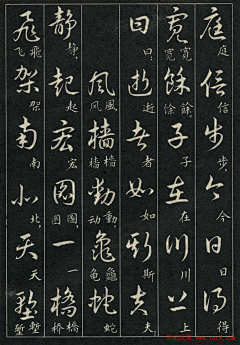 庭庭信信步步,今今日日得得
寬寬宽餘餘馀,子子在在川川上上
曰曰:逝逝者者如如斯斯夫夫,
風風风檣檣樯動動动,龜龜龟蛇蛇
靜靜静,起起宏宏圖圖图,一一橋橋桥
飛飛飞架架南南北北,天天塹塹堑